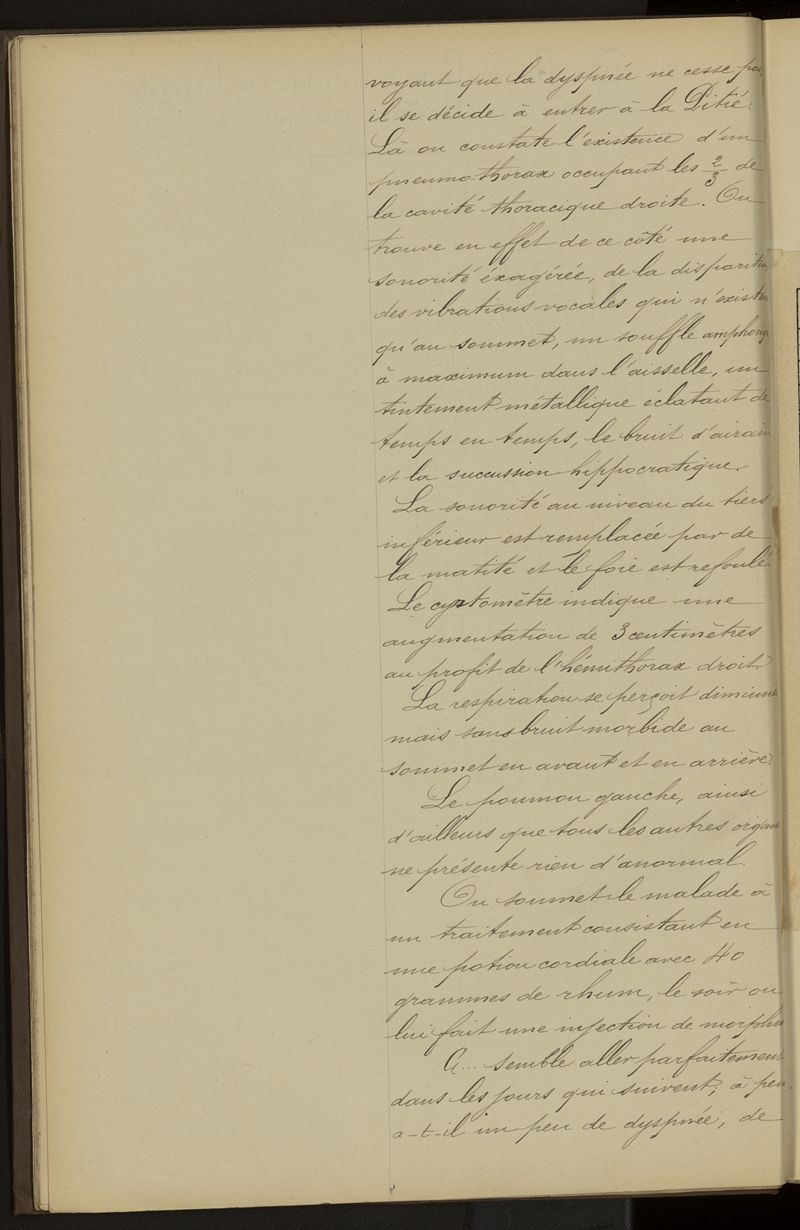 voyant que la dyspnée ne cesse pas,
il se décide à entrer à la Pitié.
Là on constate l'existence d'un
pneumo-thorax occupant les 2/3 de
la cavité thoracique droite. On
trouve en effet de ce côté une
sonorité éxagérée, de la disparition
des vibrations vocales qui n'existent
qu'au sommet, un souffle amphorique
à maximum dans l'aisselle, un
tintement métallique éclatant de
temps en temps, le bruit d'airain
et la succussion hippocratique.
La sonorité au niveau du tiers
inférieur est remplacée par de
la matité et le foie est refoulé.
Le cyrtomètre indique une
augmentation de 3 centimètres
au profit de l'hémithorax droit.
La respiration se perçoit diminuée
mais sans bruit morbide au
sommet en avant et en arrière.
Le poumon gauche, ainsi
d'ailleurs que tous les autres organes
ne présente rien d'anormal.
On soumet le malade à
un traitement consistant en
une potion cordiale avec 40
grammes de rhum, le soir on
lui fait une injection de morphine
G... semble aller parfaitement
dans les jours qui suivent; à peine
a-t-il un peu de dyspnée, de